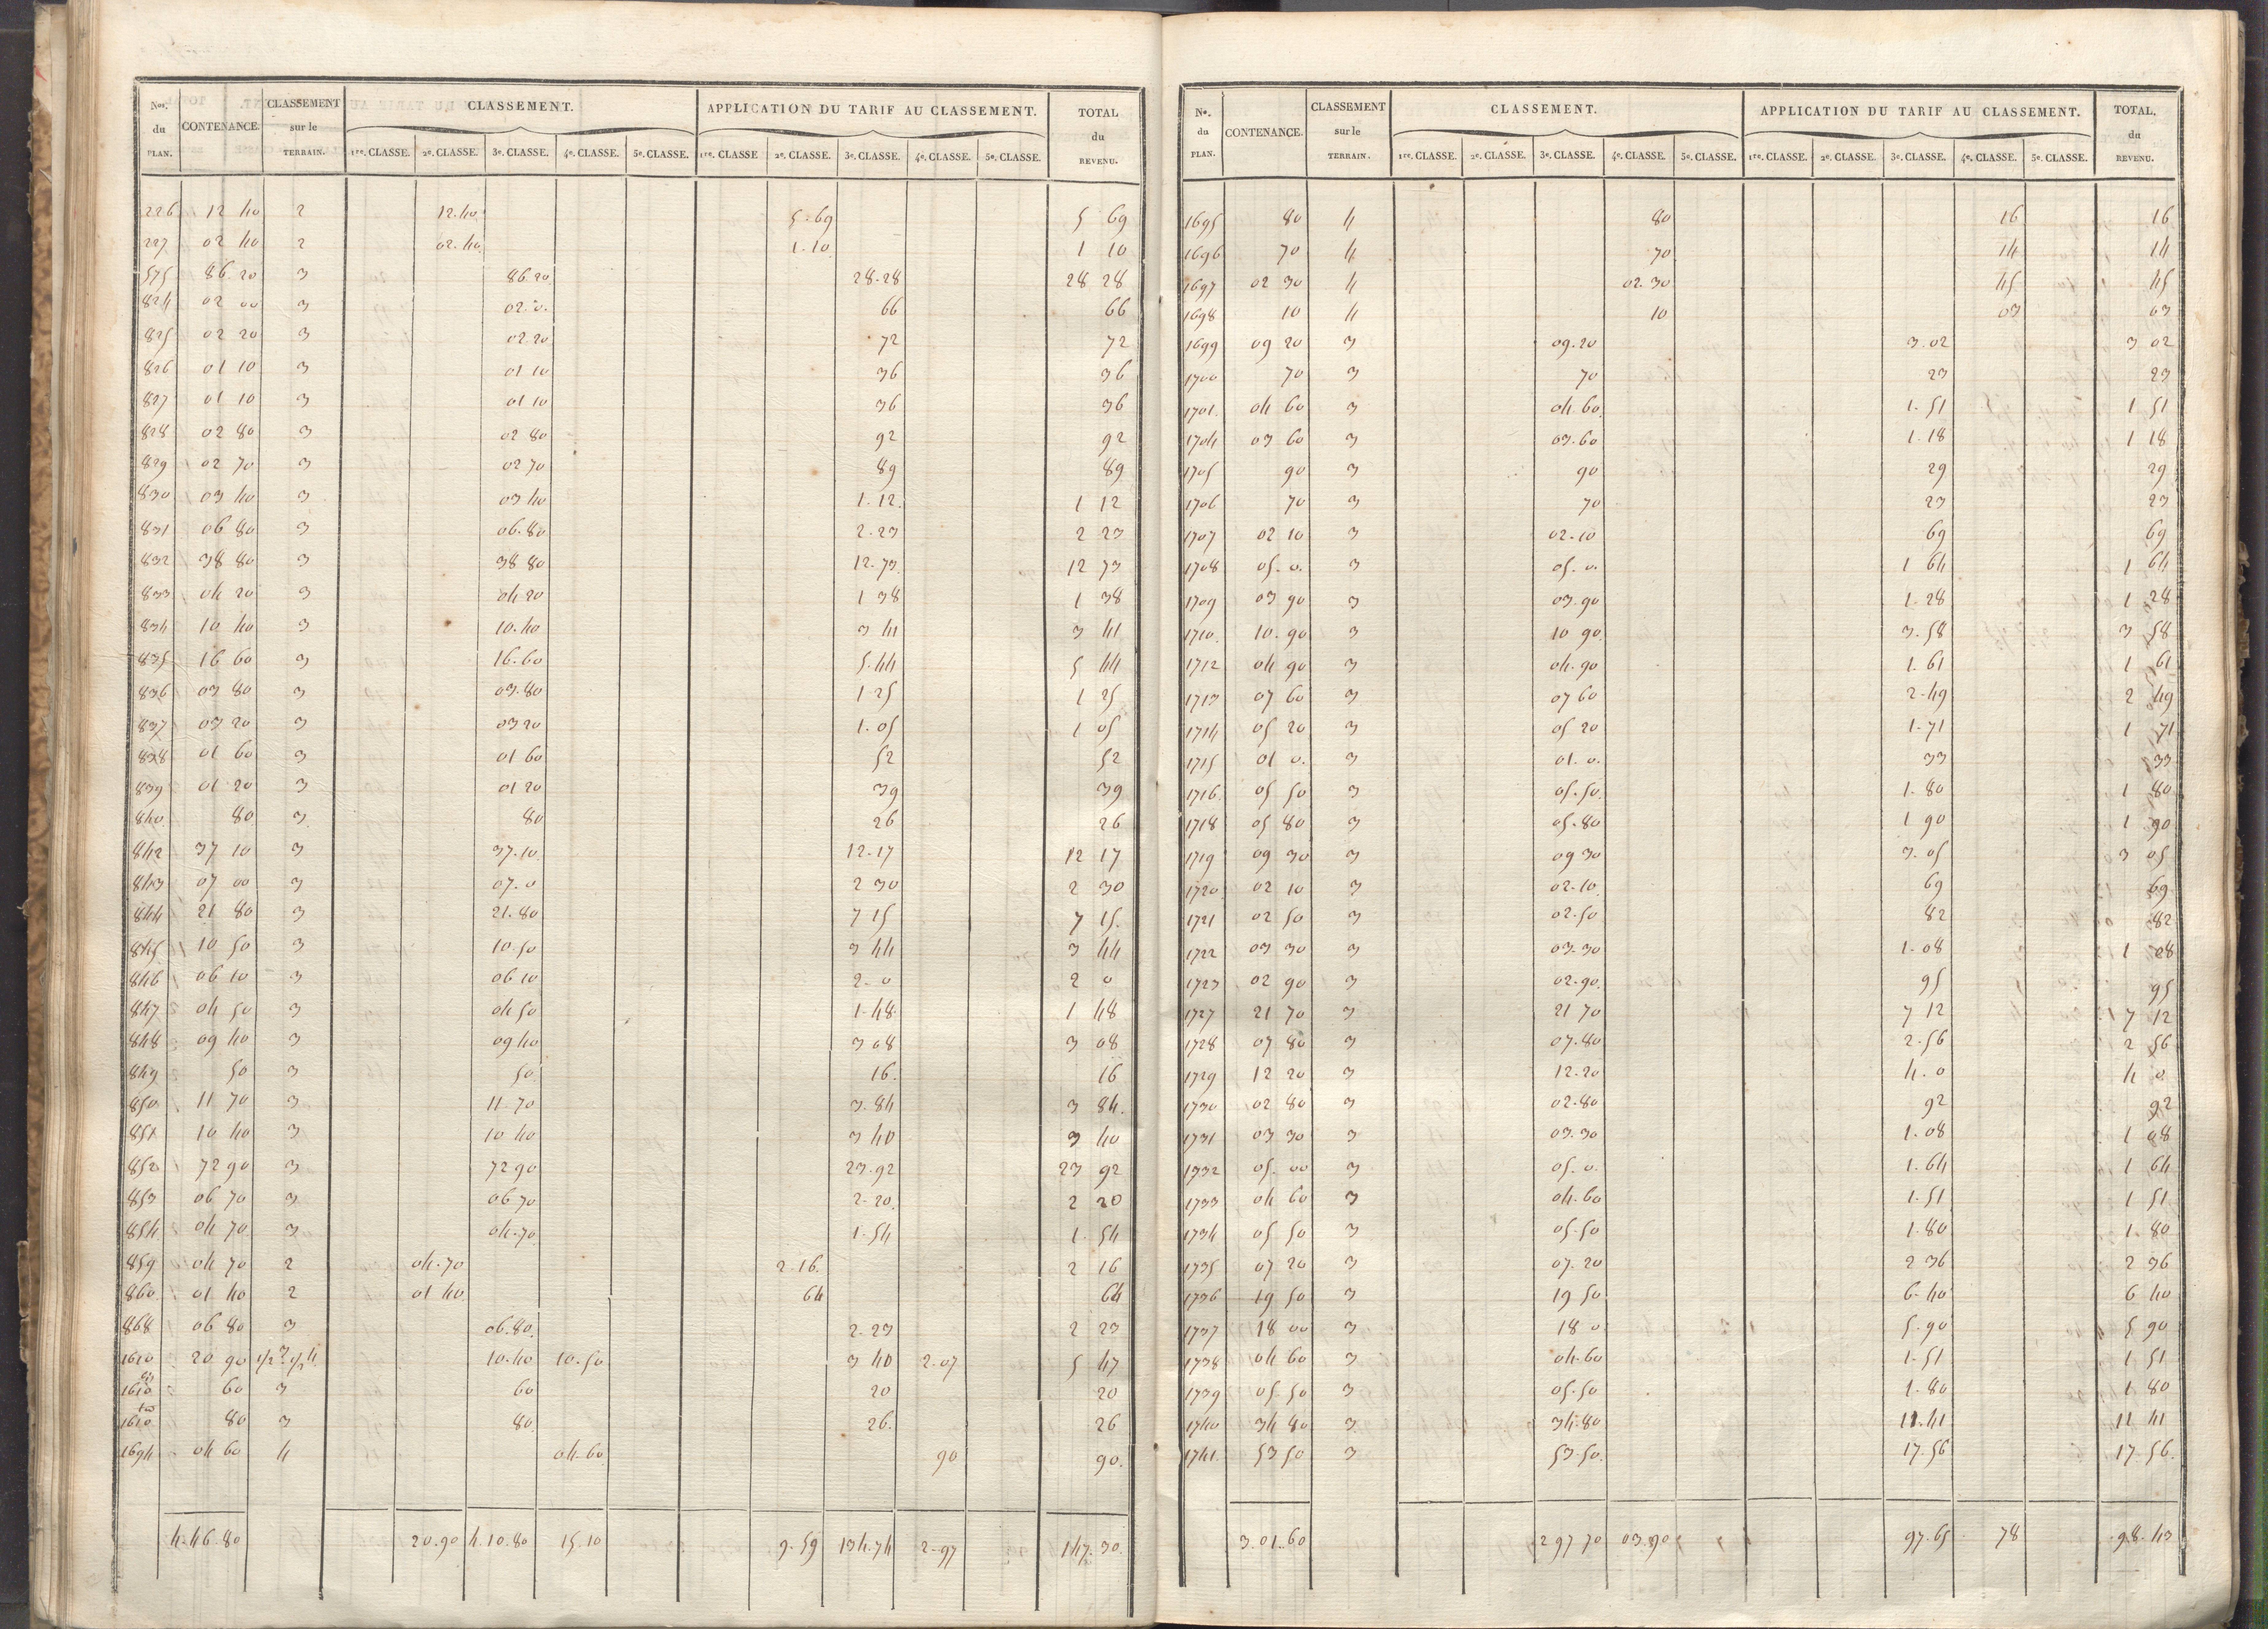 Nos. du PLAN. CONTENANCE. CLASSEMENT sur le TERRAIN. CLASSEMENT. APPLICATION DU TARIF AU CLASSEMENT. TOTAL du REVENU.
1re. CLASSE. 2e. CLASSE. 3e. CLASSE. 4e. CLASSE. 5e. CLASSE. 1re. CLASSE 2e. CLASSE. 3e. CLASSE. 4e. CLASSE. 5e. CLASSE.
226 12 40 2 12.40 5.69 5 69
227 02 40 2 02.40 1.10 1 10
575 86.20 3 86.20 28.28 28 28
824 02 00 3 02.0. 66 66
825 02 20 3 02.20 72 72
826 01 10 3 01 10 36 36
827 01 10 3 01 10 36 36
828 02 80 3 02 80 92 92
829 02 70 3 02 70 89 89
830 03 40 3 03 40 1.12. 1 12
831 06 80 3 06.80 2.23 2 23
832 38 80 3 38 80 12.73. 12 73
833 04 20 3 04 20 1 38 1 38
834 10 40 3 10.40 3 41 3 41
835 16 60 3 16.60 5.44 5 44
836 03 80 3 03.80 1 25 1 25
837 03 20 3 03 20 1.05 1 05
838 01 60 3 01 60 52 52
839 01 20 3 01 20 39 39
840. 80 3 80 26 26
842 37 10 3 37.10 12.17 12 17
843 07 00 3 07.0 2 30 2 30
844 21 80 3 21.80 7 15 7 15.
845 10 50 3 10.50 3 44 3 44
846 06 10 3 06 10 2.0 2 0
847 04 50 3 04 50 1.48 1 48
848 09 40 3 09 40 3 08 3 08
849 50 3 50. 16. 16
850 11 70 3 11.70 3.84 3 84.
851 10 40 3 10 40 3 40 3 40
852 72 90 3 72 90 23.92 23 92
853 06 70 3 06 70 2.20. 2 20
854 04 70 3 04.70 1.54 1.54
859 04 70 2 04.70 2.16. 2 16
860 01 40 2 01 40 64 64
868 06 80 3 06.80. 2.23 2 23
1610 20 90 1/2 3 1/2 4 10.40 10.50 3 40 2.07 5 47
1610 bis 60 3 60 20 20
1610 ter 80 3 80. 26. 26
1694 04 60 4 04.60 90 90.
4.46.80 20.90 4.10.80 15.10 9.59 134.74 2.97 147.30.
No. du PLAN. CONTENANCE. CLASSEMENT sur le TERRAIN. CLASSEMENT. APPLICATION DU TARIF AU CLASSEMENT. TOTAL. du REVENU.
1re. CLASSE. 2e. CLASSE. 3e. CLASSE. 4e. CLASSE. 5e. CLASSE. 1re. CLASSE. 2e. CLASSE. 3e. CLASSE. 4e. CLASSE. 5e. CLASSE.
1695 80 4 80 16 16
1696 70 4 70 14 14
1697 02 30 4 02.30 45 45
1698 10 4 10 03 03
1699 09 20 3 09.20 3.02 3 02
1700 70 3 70 23 23
1701. 04 60 3 04 60. 1.51 1 51
1704 03 60 3 03.60 1.18 1 18
1705 90 3 90 29 29
1706 70 3 70 23 23
1707 02 10 3 02.10 69 69
1708 05.0. 3 05.0. 1 64 1 64
1709 03 90 3 03.90 1.28 1 28
1710. 10.90 3 10 90. 3.58 3 58
1712 04 90 3 04.90 1.61 1 61
1713 07 60 3 07 60 2.49 2 49
1714 05 20 3 05 20 1.71 1 71
1715 01 0. 3 01.0. 33 33
1716. 05 50 3 05.50. 1.80 1 80
1718 05 80 3 05.80 1 90 1 90
1719 09 30 3 09 30 3.05 3 05
1720 02 10 3 02.10. 69 69
1721 02 50 3 02.50 82 82
1722 03 30 3 03.30 1.08 1 08
1723 02 90 3 02.90. 95 95
1727 21 70 3 21 70 7 12 7 12
1728 07 80 3 07.80 2.56 2 56
1729 12 20 3 12.20 4.0 4 0
1730 02 80 3 02.80 92 92
1731 03 30 3 03.30 1.08 1 08
1732 05.00 3 05.0. 1.64 1 64
1733 04 60 3 04.60 1.51 1 51
1734 05 50 3 05.50 1.80 1.80
1735 07 20 3 07.20 2 36 2 36
1736 19 50 3 19 50 6.40 6 40
1737 18 00 3 18 0 5.90 5 90
1738 04 60 3 04.60 1.51 1 51
1739 05.50 3 05.50 1.80 1 80
1740 34 80 3 34.80 11.41 11 41
1741. 53 50 3 53.50. 17.56 17.56.
3.01.60 2 97 70 03.90 97.65 78 98.43